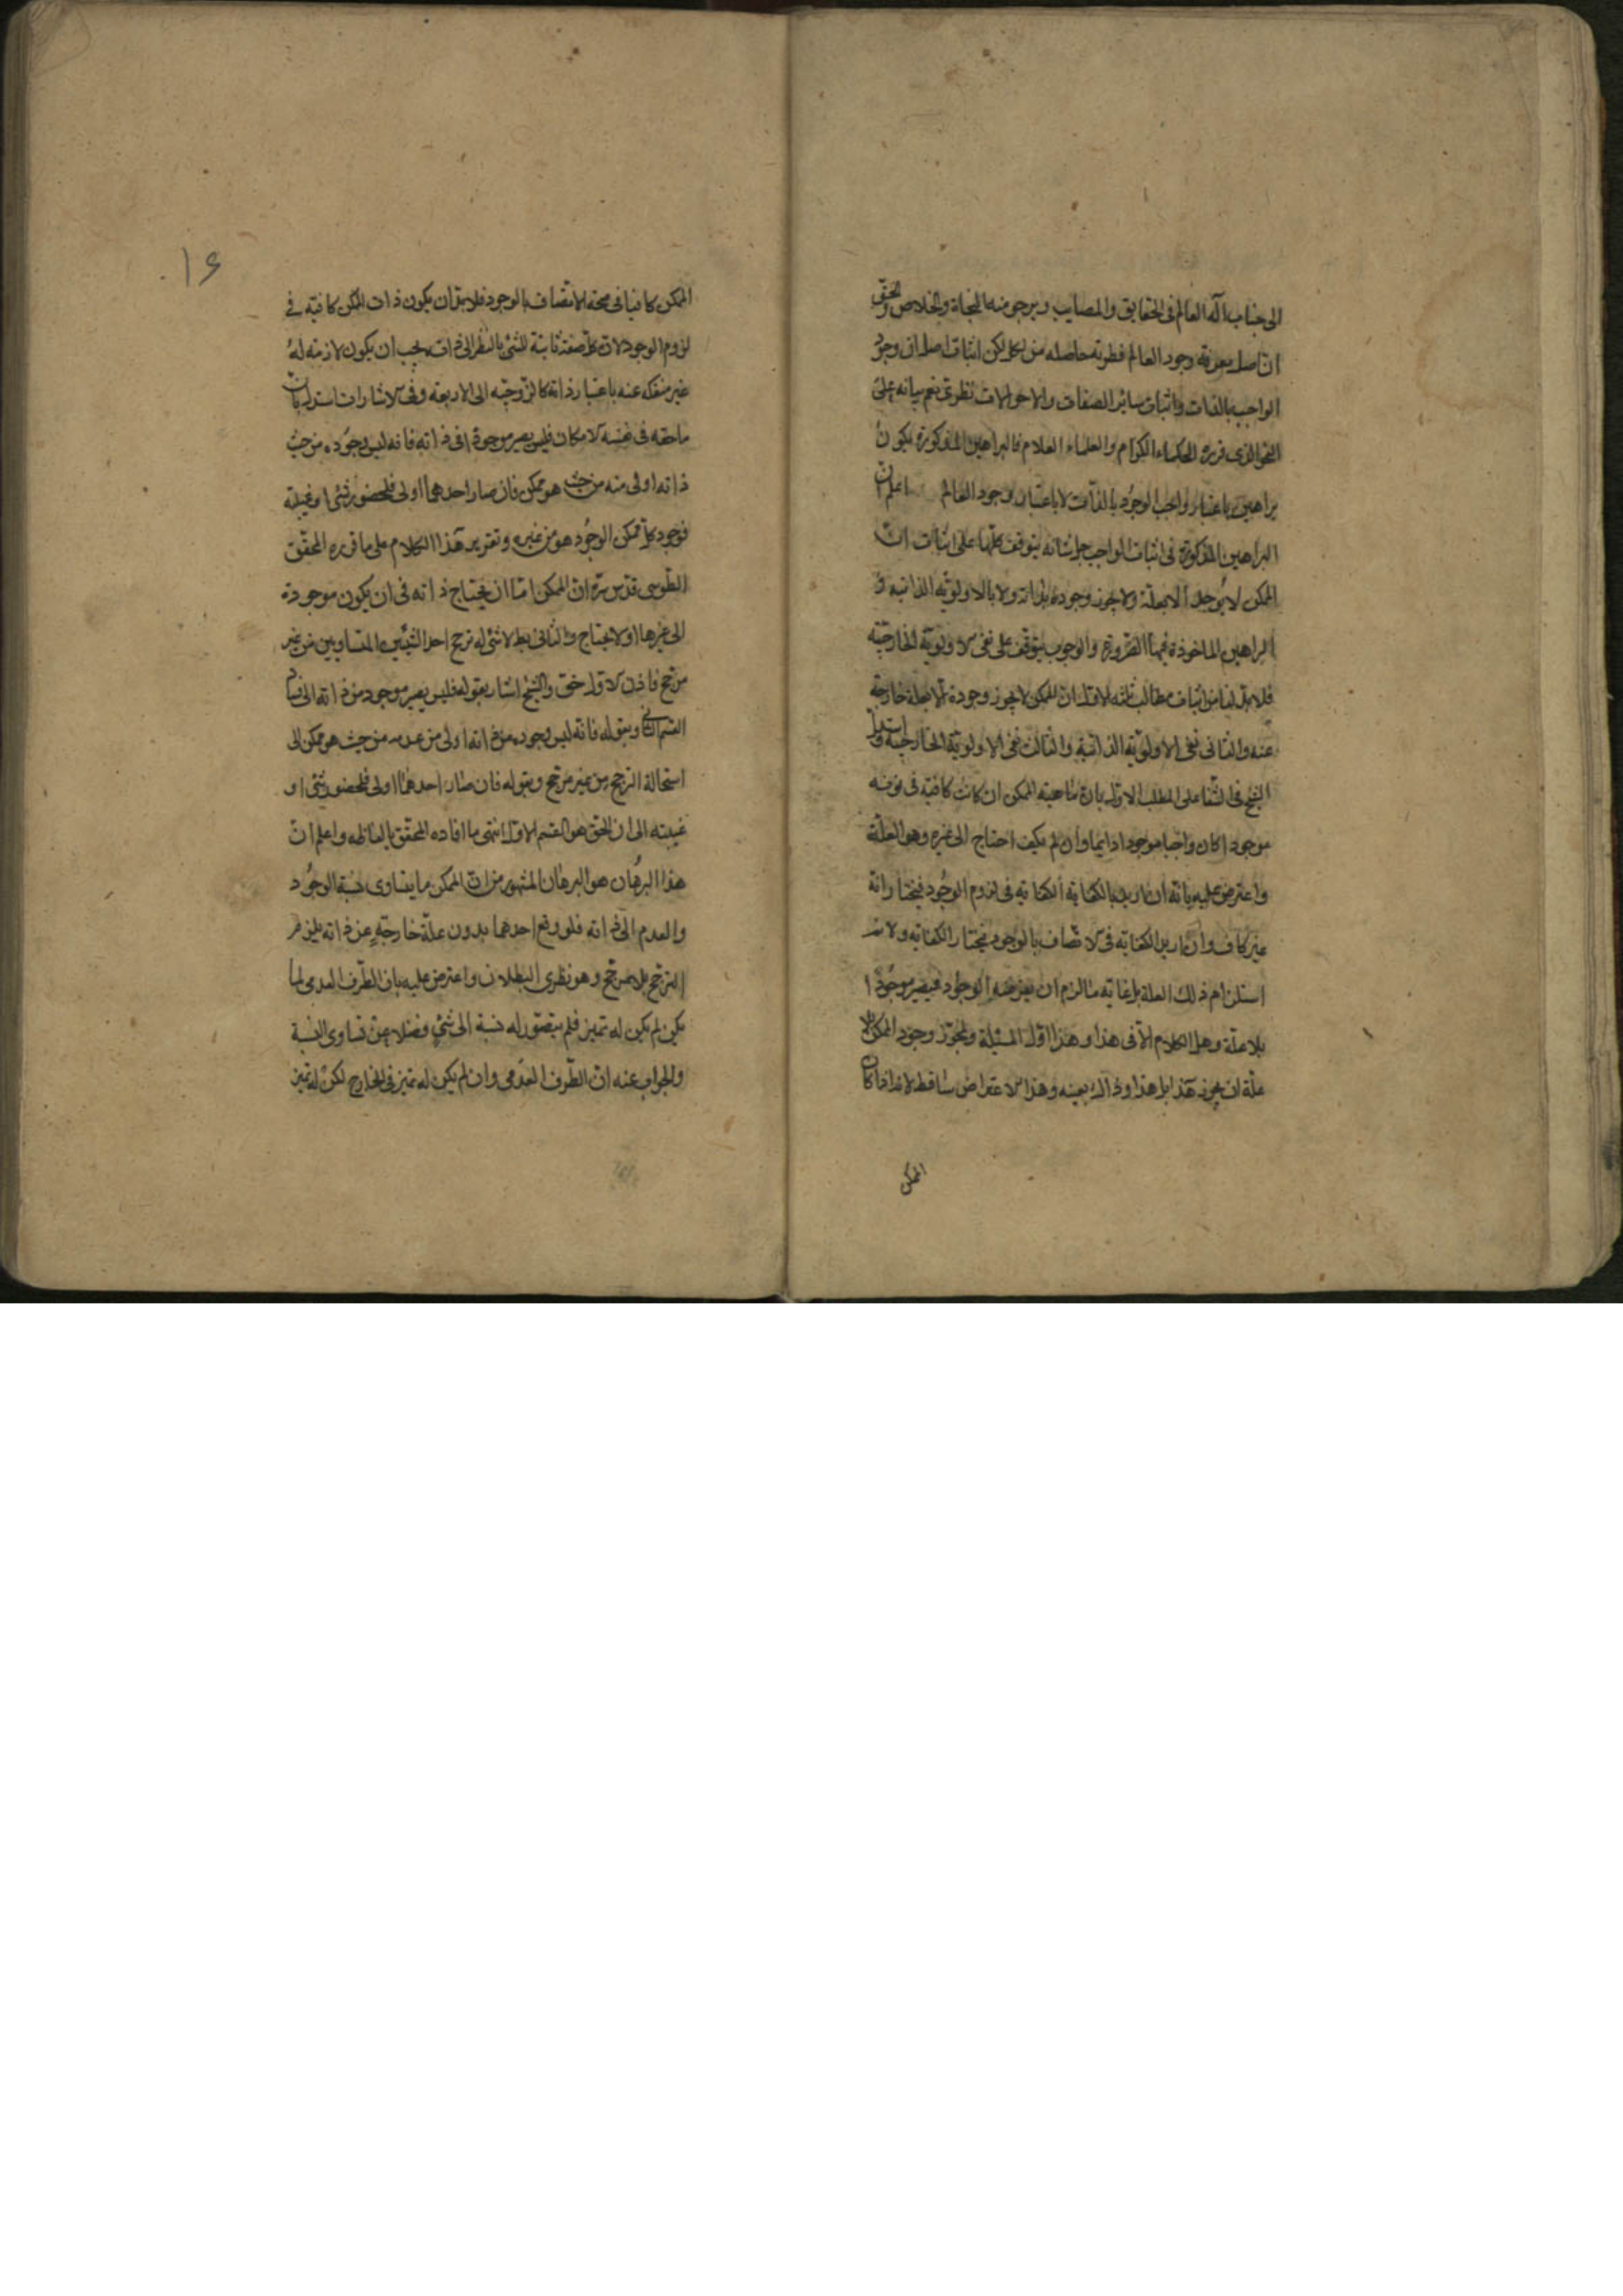 الى جناب اله العالم فى الحقايق والمصايب ويرجى منه النجاة والخلاص والحق
ان اصل معرفة وجود العالم فطرية حاصله من لكن اثبات اصل ان وجود
الواجب بالذات واثبات ساير الصفات والاحوالات نظرى نعم بيانه على
النحو الذى قرره الحكماء الكرام والعلماء العلام فالبراهين المذكورة يكون
براهين باعتبار واجب الوجود بالذات لا باعتبار وجود العالم اعلم ان
البراهين المذكورة فى اثبات الواجب جل شانه يتوقف كلها على اثبات ان
الممكن لا يوجد الا بعلة ولا يجوز وجوده بذاته ولا بالاولوية الذاتية و
البراهين الماخوذة فيها الضرورة والوجوب يتوقف على نفى الاولوية الخارجية
فلابد لنا من اثبات مطالب ثلثه الاول ان الممكن لا يجوز وجوده الا بعلة خارجة
عنه والثانى نفى الاولوية الذاتية والثالث نفى الاولوية الخارجية واستدل
الشيخ فى الشفا على المطلب الاول بان ماهية الممكن ان كانت كافية فى كونه
موجودا كان واجبا موجودا دايما وان لم يكف احتاج الى غيره وهو العلة
واعترض عليه بانه ان اريد بالكفاية الكفاية فى لزوم الوجود فيختار انه
غير كاف وان اريد الكفاية فى الاتصاف بالوجود فيختار الكفاية ولا نم
استلزام ذلك العلة بل غاية ما لزم ان يعرضه الوجود فيصير موجودا
بلا علة وهل الكلام الا فى هذا وهذا اول المسئلة وتجوز وجود الممكن بلا
علة ان يجوز هذا بل هذا وذاك بعينه وهذا الاعتراض ساقط لانه اذا كان
الممكن
١٦
الممكن كافيا فى صحة الاتصاف بالوجود فلابد ان يكون ذات الممكن كافية فى
لزوم الوجود لان كل صفة ثابتة للشئ بالنظر الى ذات يجب ان يكون لازمة له
غير منفكه عنه باعتبار ذاته كالزوجية الى الاربعة وفى الاشارات استدل بان
ماحقه فى نفسه الامكان فليس يصير موجودا فى ذاته فانه ليس وجوده من حيث
ذاته اولى منه من حيث هو ممكن فان صار احدهما اولى فلحضور شئ او غيبته
فوجود كل ممكن الوجود هو من غيره وتقرير هذا الكلام على ما قرره المحقق
الطوسى قدس سره ان الممكن اما ان يحتاج ذاته فى ان يكون موجودة
الى غيرها او لا يحتاج والثانى بط لاستحالة ترجح احد الشيئين المتساويين من غير
مرجح فاذن الاول حق والشيخ اشار بقوله فليس يصير موجود من ذاته الى فساد
القسم الثانى وبقوله فانه ليس وجوده من ذاته اولى من عدمه من حيث هو ممكن الى
استحالة الترجح من غير مرجح وبقوله فان صار احدهما اولى فلحضور شئ او
غيبته الى ان الحق هو القسم الاول انتهى ما افاده المحقق بالفاظه واعلم ان
هذا البرهان هو البرهان المشهور من ان الممكن ما يتساوى نسبة الوجود
والعدم الى ذاته فلو وقع احدهما بدون علة خارجة عن ذاته يلزم
الترجح بلا مرجح وهو نظرى البطلان واعترض عليه بان الطرف العدمى لما
يكن لم يكن له تميز فلم يتصور له نسبة الى شئ فضلا عن تساوى النسبة
والجواب عنه ان الطرف العدمى وان لم يكن له تميز فى الخارج لكن له تميز